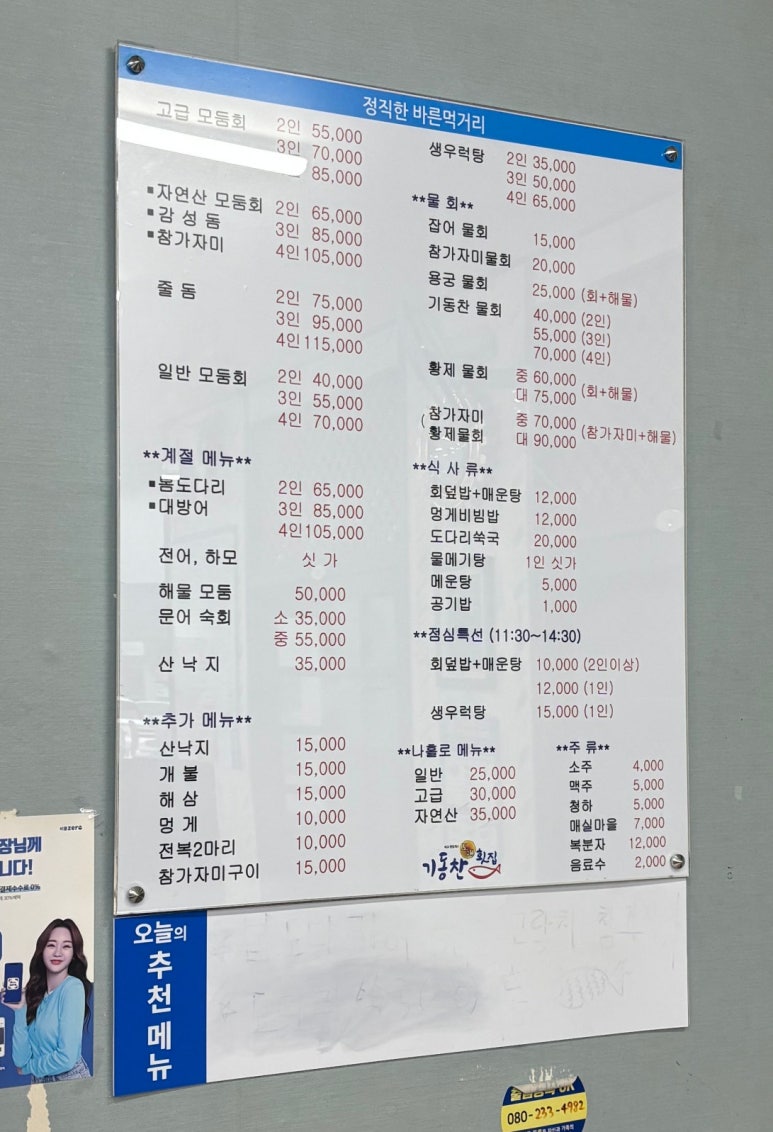 정직한 바른먹거리
고급 모둠회 2인 55,000
3인 70,000
85,000
▪자연산 모둠회 2인 65,000
▪감성돔 3인 85,000
▪참가자미 4인 105,000
줄돔 2인 75,000
3인 95,000
4인 115,000
일반 모둠회 2인 40,000
3인 55,000
4인 70,000
**계절 메뉴**
▪봄도다리 2인 65,000
▪대방어 3인 85,000
4인 105,000
전어, 하모 싯가
해물 모둠 50,000
문어 숙회 소 35,000
중 55,000
산낙지 35,000
**추가 메뉴**
산낙지 15,000
개불 15,000
해삼 15,000
멍게 10,000
전복2마리 10,000
참가자미구이 15,000
생우럭탕 2인 35,000
3인 50,000
4인 65,000
**물 회**
잡어 물회 15,000
참가자미물회 20,000
용궁 물회 25,000 (회+해물)
기동찬 물회 40,000 (2인)
55,000 (3인)
70,000 (4인)
황제 물회 중 60,000
대 75,000 (회+해물)
참가자미 중 70,000
황제물회 대 90,000 (참가자미+해물)
**식 사 류**
회덮밥+매운탕 12,000
멍게비빔밥 12,000
도다리쑥국 20,000
물메기탕 1인 싯가
메운탕 5,000
공기밥 1,000
**점심특선 (11:30~14:30)
회덮밥+매운탕 10,000 (2인이상)
12,000 (1인)
생우럭탕 15,000 (1인)
**나홀로 메뉴**
일반 25,000
고급 30,000
자연산 35,000
**주 류**
소주 4,000
맥주 5,000
청하 5,000
매실마을 7,000
복분자 12,000
음료수 2,000
기동찬 횟집
오늘의
추천메뉴
장님께
니다!
080-233-4982